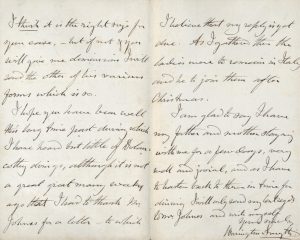 I think it is the right size for
your case, – but if not if you
will give me dimensions I will
send the other of his various
forms which is so.
I hope you have been well
this long time past during which
I have heard but little of
doings, although it is not
a great great many weeks
ago that I had to thank Mrs
Johnes for a letter – to which
I believe that my reply is yet
due. As I gather then the
ladies were to remain in Italy
and he to join them after
Christmas.
I am glad to say I have
my father and mother staying
with me for a few days, very
well and jovial, and as I have
to hasten back to them in time for
dinner I will only send my best regards to
Mrs Johnes and
Yours
Warington Smyth